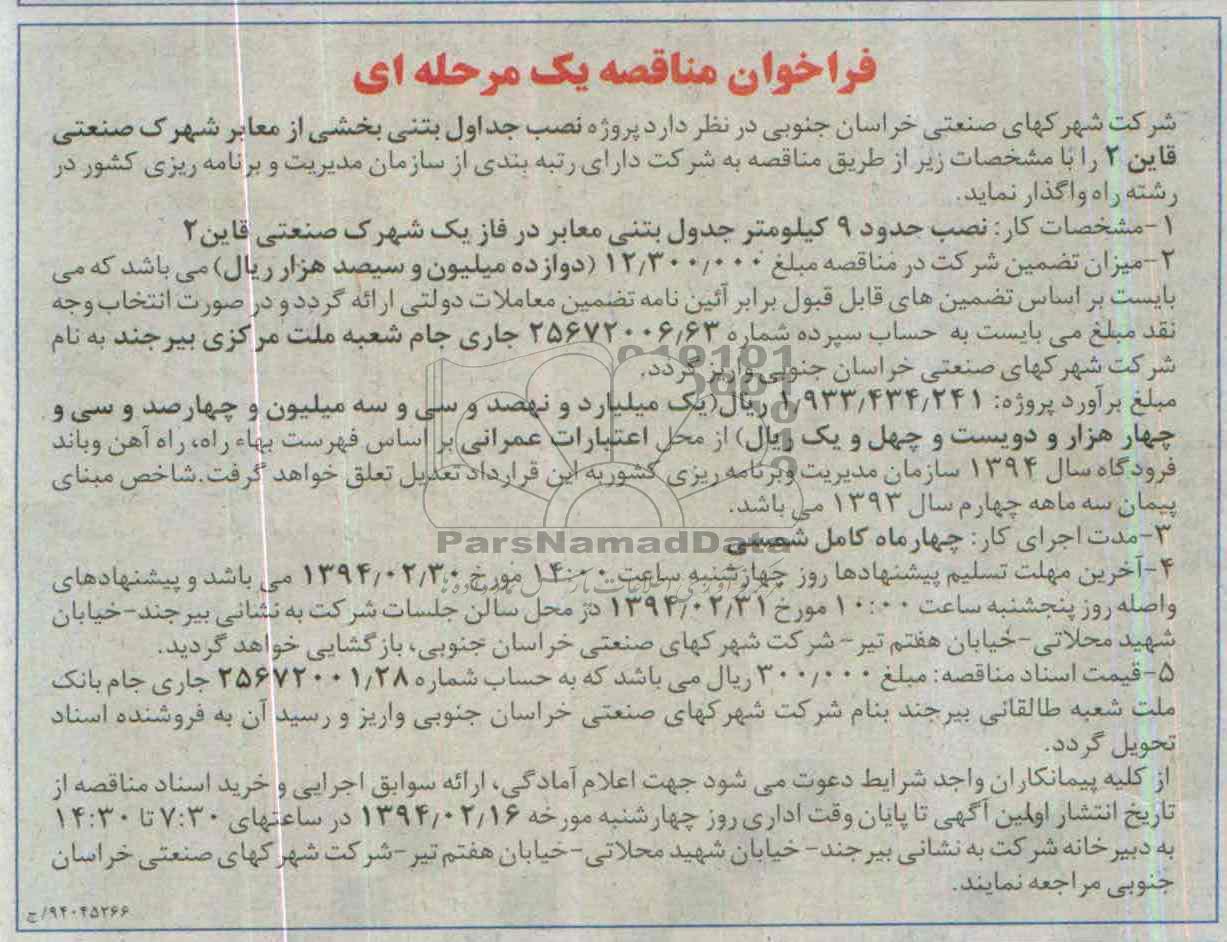 فراخوان مناقصه یک مرحله ای
شرکت شهرکهای صنعتی خراسان جنوبی در نظر دارد پروژه نصب جداول بتنی بخشی از معابر شهرک صنعتی
قاین ۲ را با مشخصات زیر از طریق مناقصه به شرکت دارای رتبه بندی از سازمان مدیریت و برنامه ریزی کشور در
رشته راه واگذار نماید.
۱-مشخصات کار: نصب حدود ۹ کیلومتر جدول بتنی معابر در فاز یک شهرک صنعتی قاین۲
۲-میزان تضمین شرکت در مناقصه مبلغ ۱۲٫۳۰۰٫۰۰۰ (دوازده میلیون و سیصد هزار ریال) می باشد که می
بایست بر اساس تضمین های قابل قبول برابر آئین نامه تضمین معاملات دولتی ارائه گردد و در صورت انتخاب وجه
نقد مبلغ می بایست به حساب سپرده شماره ۲۵۶۷۲۰۰۶٫۶۳ جاری جام شعبه ملت مرکزی بیرجند به نام
شرکت شهرکهای صنعتی خراسان جنوبی واریز گردد.
مبلغ برآورد پروژه: ۱٫۹۳۳٫۴۳۴٫۲۴۱ ریال(یک میلیارد و نهصد و سی و سه میلیون و چهارصد و سی و
چهار هزار و دویست و چهل و یک ریال) از محل اعتبارات عمرانی بر اساس فهرست بهاء راه، راه آهن وباند
فرودگاه سال ۱۳۹۴ سازمان مدیریت وبرنامه ریزی کشوربه این قرارداد تعدیل تعلق خواهد گرفت.شاخص مبنای
پیمان سه ماهه چهارم سال ۱۳۹۳ می باشد.
۳-مدت اجرای کار: چهارماه کامل شمسی
ParsNamadData
۴-آخرین مهلت تسلیم پیشنهادها روز چهارشنبه ساعت ۱۴:۰۰ مورخ ۱۳۹۴٫۰۲٫۳۰ می باشد و پیشنهادهای
واصله روز پنجشنبه ساعت ۱۰:۰۰ مورخ ۱۳۹۴٫۰۲٫۳۱ در محل سالن جلسات شرکت به نشانی بیرجند-خیابان
شهید محلاتی -خیابان هفتم تیر- شرکت شهرکهای صنعتی خراسان جنوبی، بازگشایی خواهد گردید.
۵-قیمت اسناد مناقصه: مبلغ ۳۰۰٫۰۰۰ ریال می باشد که به حساب شماره ۲۵۶۷۲۰۰۱٫۲۸ جاری جام بانک
ملت شعبه طالقانی بیرجند بنام شرکت شهرکهای صنعتی خراسان جنوبی واریز و رسید آن به فروشنده اسناد
تحویل گردد.
از کلیه پیمانکاران واجد شرایط دعوت می شود جهت اعلام آمادگی، ارائه سوابق اجرایی و خرید اسناد مناقصه از
تاریخ انتشار اولین آگهی تا پایان وقت اداری روز چهارشنبه مورخه ۱۳۹۴٫۰۲٫۱۶ در ساعتهای ۷:۳۰ تا ۱۴:۳۰
به دبیرخانه شرکت به نشانی بیرجند- خیابان شهید محلاتی-خیابان هفتم تیر-شرکت شهرکهای صنعتی خراسان
جنوبی مراجعه نمایند.
۹۴۰۴۵۲۶۶/ج